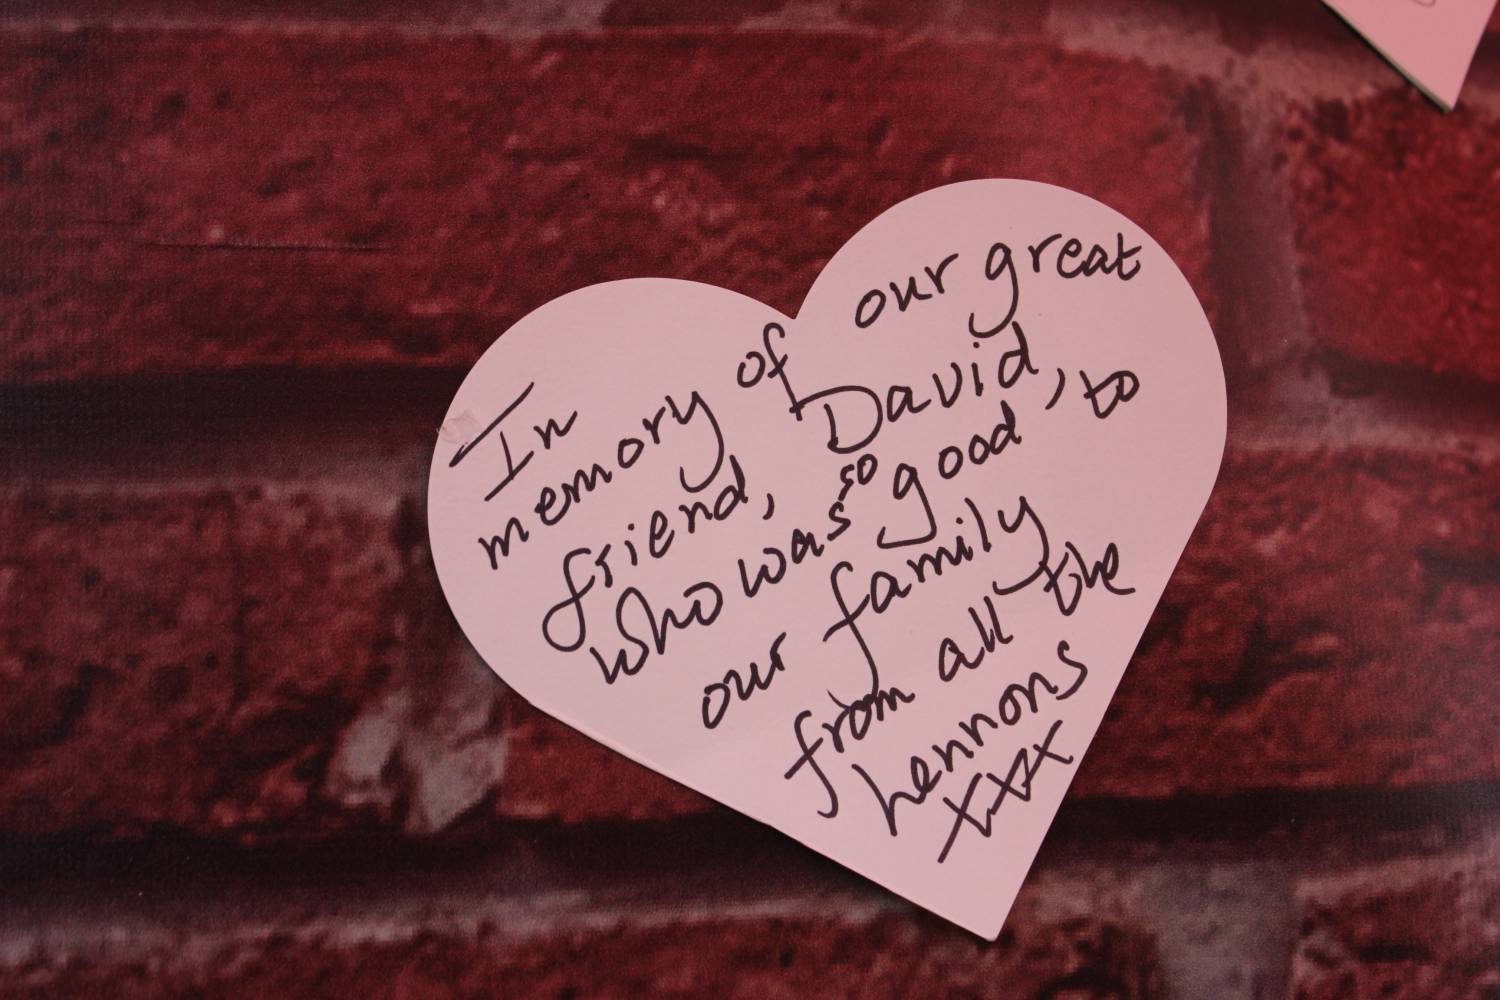 In
memory of our great
friend, David,
who was so good, to
our family
from all the
Lennons
xxx